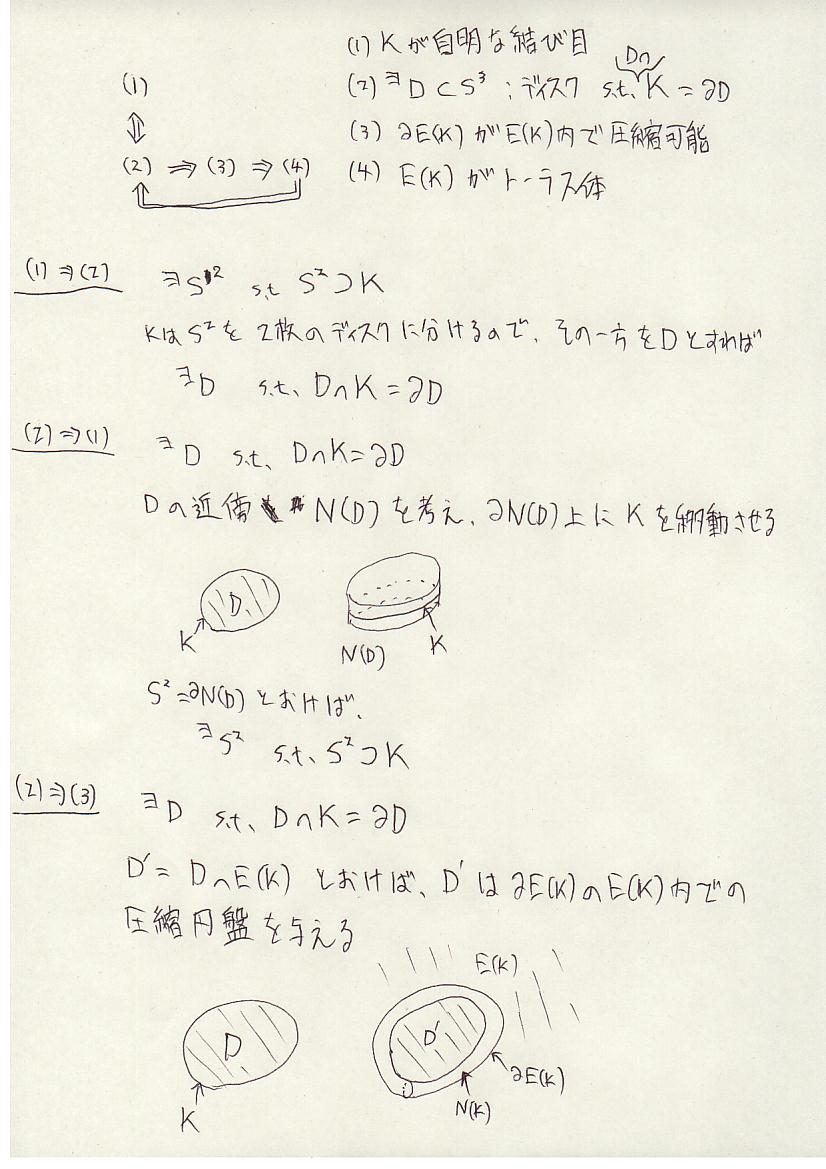 (1) Kが自明な結び目
(2) ∃D⊂S³ ; ディスク s.t. D∩K = ∂D
(3) ∂E(K)がE(K)内で圧縮可能
(4) E(K)がトーラス体
(1)
⇕
(2) ⇒ (3) ⇒ (4)
(1)⇒(2) ∃S² s.t. S²⊃K
KはS²を2枚のディスクに分けるので、その一方をDとすれば
∃D s.t. D∩K=∂D
(2)⇒(1) ∃D s.t. D∩K=∂D
Dの近傍 N(D)を考え、∂N(D)上にKを移動させる
D
K
N(D)
K
S²=∂N(D)とおけば、
∃S² s.t. S²⊃K
(2)⇒(3) ∃D s.t. D∩K=∂D
D′= D∩E(K) とおけば、D′は∂E(K)のE(K)内での
圧縮円盤を与える
E(K)
D
D′
K
∂E(K)
N(K)